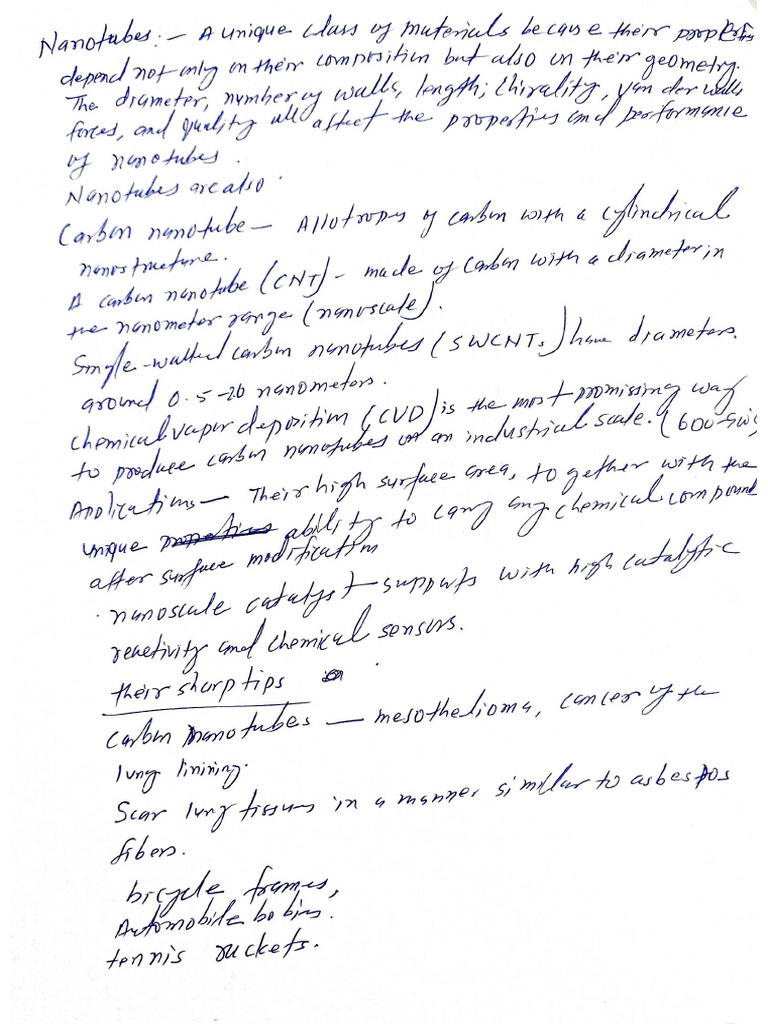 Nanotubes:- A unique class of materials because their properties
depend not only on their composition but also on their geometry.
The diameter, number of walls, length, chirality, van der walls
forces, and quality all affect the properties and performance
of nanotubes.
Nanotubes are also
Carbon nanotube - Allotropes of carbon with a cylindrical
nanostructure.
A carbon nanotube (CNT) - made of carbon with a diameter in
the nanometer range (nanoscale).
Single-walled carbon nanotubes (SWCNTs) have diameters.
around 0.5-20 nanometers.
Chemical vapur deposition (CVD) is the most promissing way
to produce carbon nanotubes on an industrial scale. (600
Applications - Their high surface area, together with the
unique ability to carry any chemical compound
after surface modification
. nanoscale catalyst-supports with high catalytic
reactivity and chemical sensors.
their sharp tips
Carbon nanotubes - mesothelioma, cancer of the
lung linining.
Scar lung tissues in a manner similar to asbestos
fibers.
bicycle frames,
Automobile
tennis ruckets.